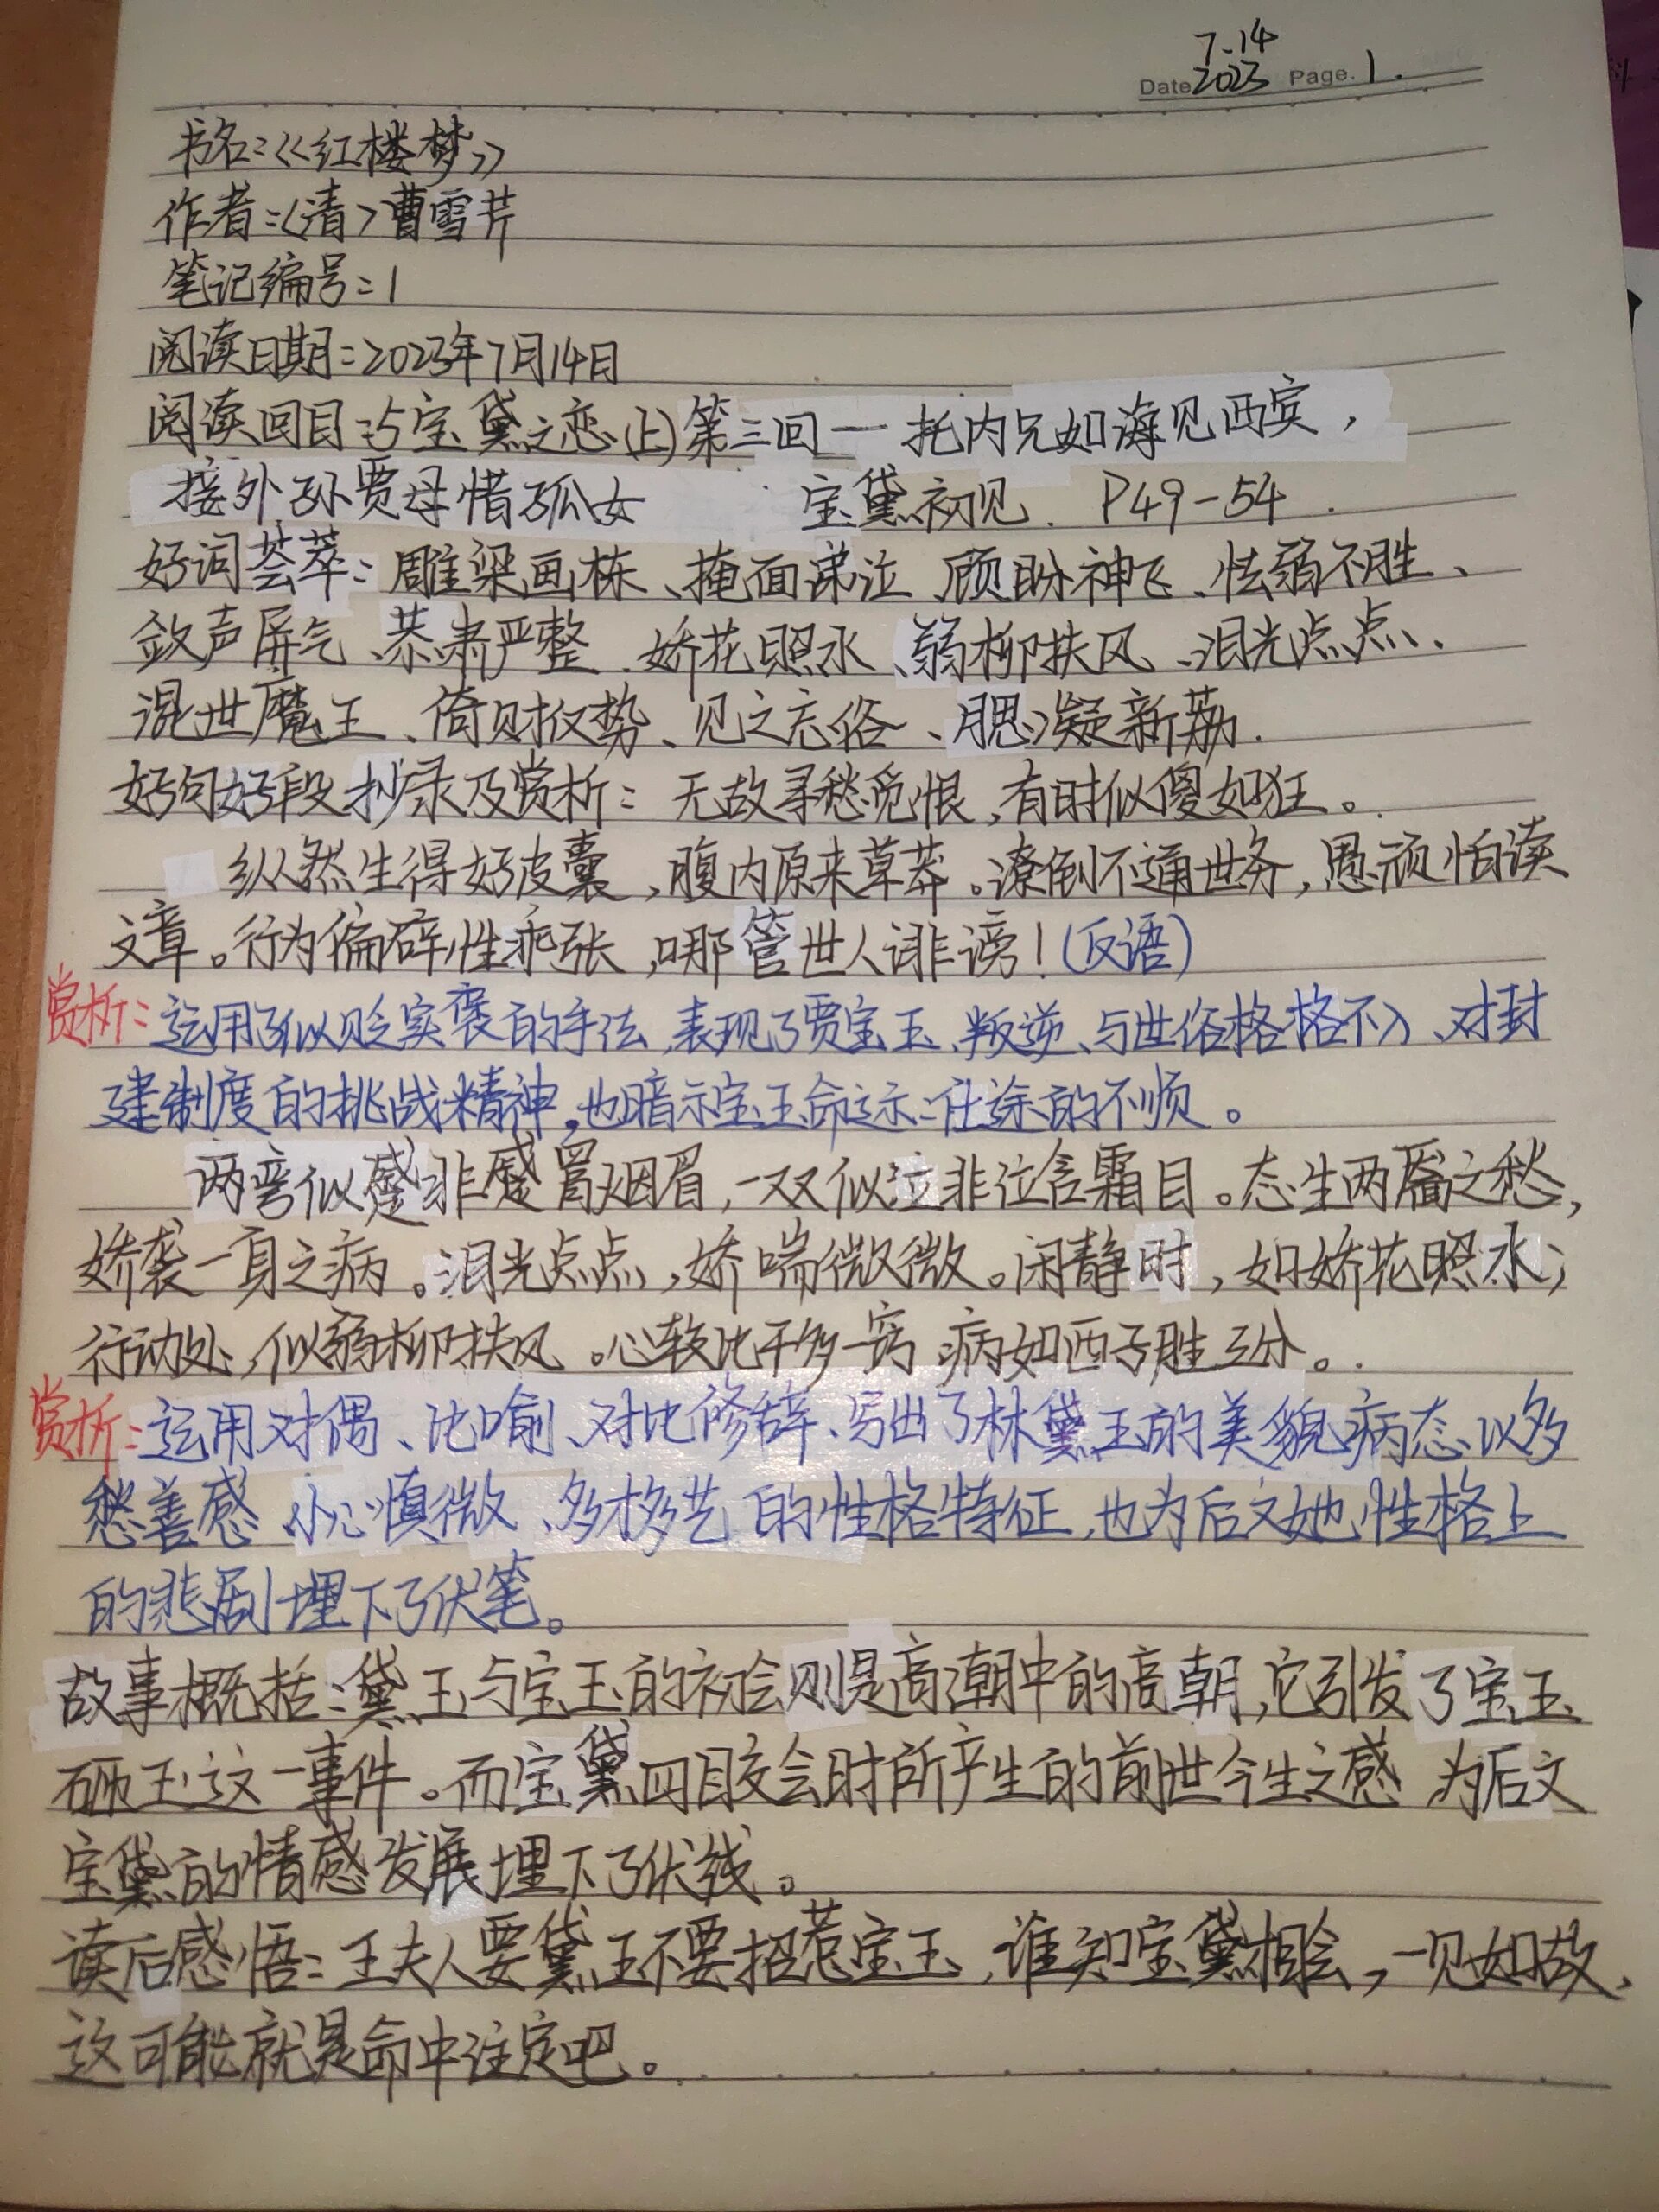 7.14
Date 2023 Page. 1.
书名:《红楼梦》
作者:<清>曹雪芹
笔记编号:1
阅读日期:2023年7月14日
阅读回目:与宝黛之恋(上)第三回一托内兄如海见西宾,
接外孙贾母惜孤女 宝黛初见. P49-54.
好词荟萃:雕梁画栋、掩面涕泣、顾盼神飞、怯弱不胜、
敛声屏气、恭肃严整、娇花照水、弱柳扶风、泪光点点、
混世魔王、倚财仗势、见之忘俗、腮凝新荔.
好句好段抄录及赏析:无故寻愁觅恨,有时似傻如狂。
纵然生得好皮囊,腹内原来草莽。潦倒不通世务,愚顽怕读
文章。行为偏僻性乖张,哪管世人诽谤!(反语)
赏析:运用了似贬实褒的手法,表现了贾宝玉叛逆、与世俗格格不入、对封
建制度的挑战精神,也暗示宝玉命运:仕途的不顺。
两弯似蹙非蹙罥烟眉,一双似泣非泣含霜目。态生两靥之愁,
娇袭一身之病。泪光点点,娇喘微微。闲静时,如娇花照水;
行动处,似弱柳扶风。心较比干多一窍,病如西子胜三分。
赏析:运用对偶、比喻、对比修辞、写出了林黛玉的美貌病态以多
愁善感、小心慎微、多才多艺的性格特征,也为后文她性格上
的悲剧埋下了伏笔。
故事概括:黛玉与宝玉的初会则是高潮中的高朝,它引发了宝玉
砸玉这一事件。而宝黛四目交会时所产生的前世今生之感,为后文
宝黛的情感发展埋下了伏线。
读后感悟:王夫人要黛玉不要招惹宝玉,谁知宝黛相会,一见如故,
这可能就是命中注定吧。